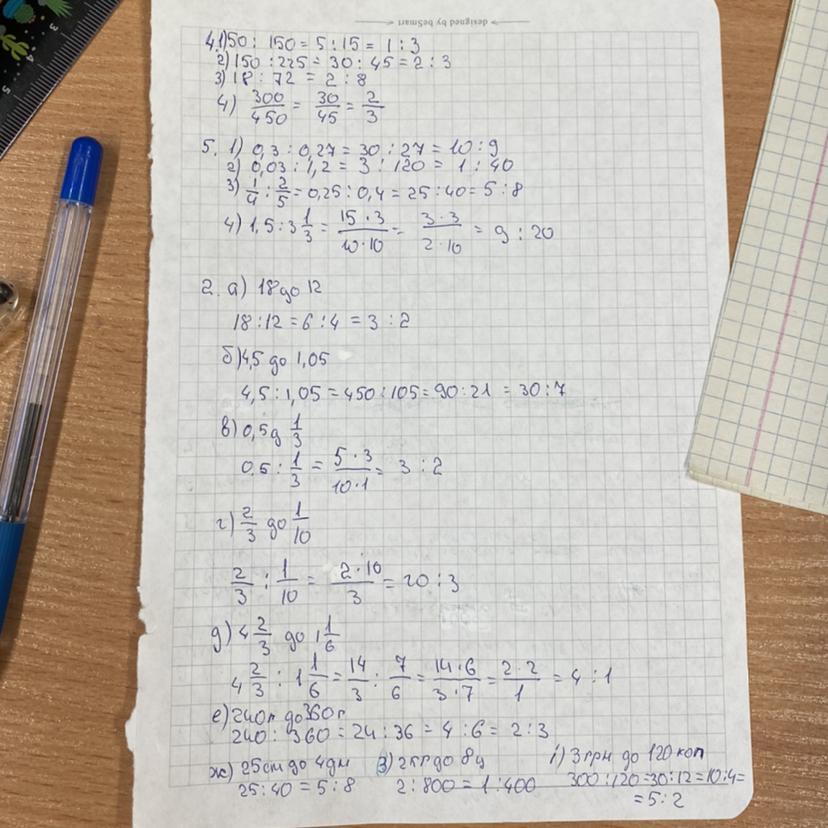 designed by beSmart
4.1) 50 : 150 = 5 : 15 = 1 : 3
2) 150 : 225 = 30 : 45 = 2 : 3
3) 18 : 72 = 2 : 8
4) 300/450 = 30/45 = 2/3
5. 1) 0,3 : 0,27 = 30 : 27 = 10 : 9
2) 0,03 : 1,2 = 3 : 120 = 1 : 40
3) 1/4 : 2/5 = 0,25 : 0,4 = 25 : 40 = 5 : 8
4) 1,5 : 3 1/3 = 15·3/10·10 = 3·3/2·10 = 9 : 20
2. а) 18 до 12
18 : 12 = 6 : 4 = 3 : 2
б) 4,5 до 1,05
4,5 : 1,05 = 450 : 105 = 90 : 21 = 30 : 7
в) 0,5 д 1/3
0,5 : 1/3 = 5·3/10·1 = 3 : 2
г) 2/3 до 1/10
2/3 : 1/10 = 2·10/3 = 20 : 3
д) 4 2/3 до 1 1/6
4 2/3 : 1 1/6 = 14/3 : 7/6 = 14·6/3·7 = 2·2/1 = 4 : 1
е) 240г до 360г
240 : 360 = 24 : 36 = 4 : 6 = 2 : 3
ж) 25 см до 4 дм з) 2 кг до 8 ц і) 3 грн до 120 коп
25 : 40 = 5 : 8 2 : 800 = 1 : 400 300 : 120 = 30 : 12 = 10 : 4 =
= 5 : 2